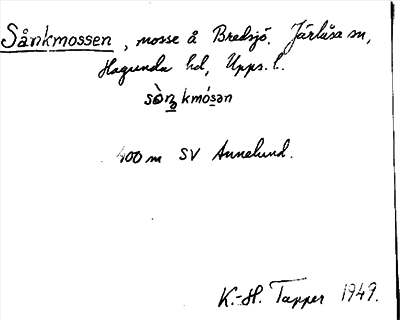 Sånkmossen, mosse å Bredsjö. Järlåsa sn,
Hagunda hd, Upps. l.
sòŋkmósən
400 m SV Annelund.
K.-H. Tapper 1949.